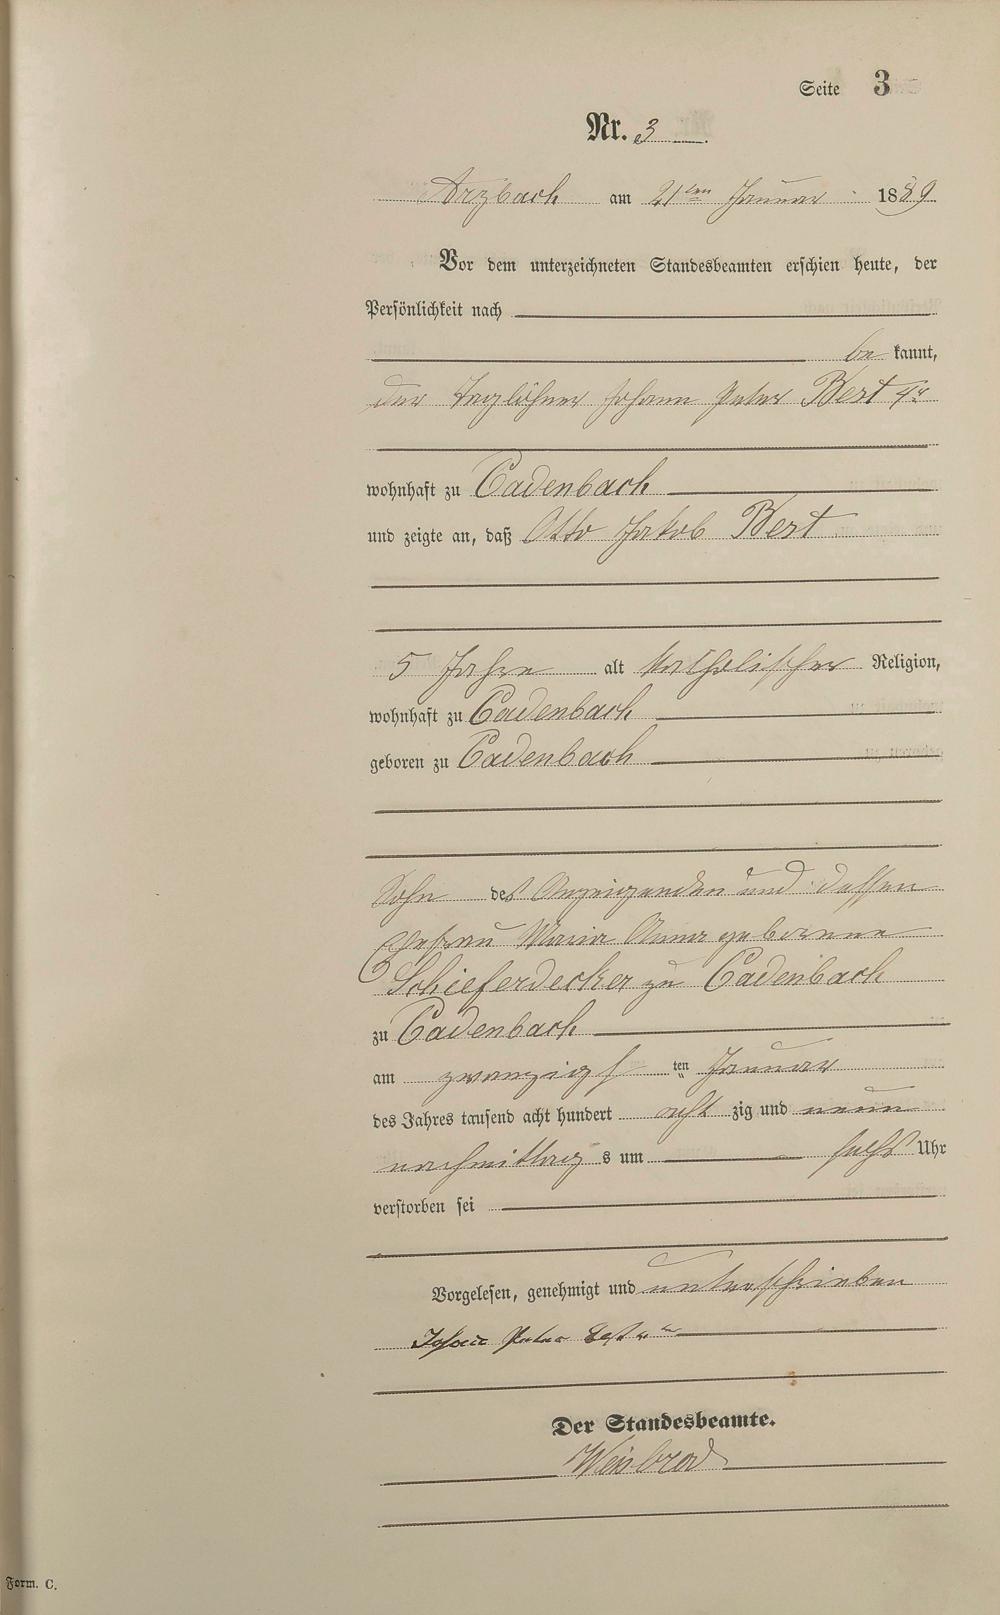 Seite 3
Nr. 3
Arzbach am 21ten Januar 1889
Vor dem unterzeichneten Standesbeamten erschien heute, der
Persönlichkeit nach
be kannt,
der Taglöhner Johann Peter Bert 4r
wohnhaft zu Cadenbach
und zeigte an, daß Otto Jakob Bert
5 Jahre alt katholischer Religion,
wohnhaft zu Cadenbach
geboren zu Cadenbach
Sohn des Anzeigenden und dessen
Ehefrau Maria Anna geborenne
Schieferdecker zu Cadenbach
zu Cadenbach
am zwanzigs ten Januar
des Jahres tausend acht hundert acht zig und neun
nachmittag s um sechs Uhr
verstorben sei
Vorgelesen, genehmigt und unterschrieben
Johann Peter Bert
Der Standesbeamte.
Weisbrod
Form. C.